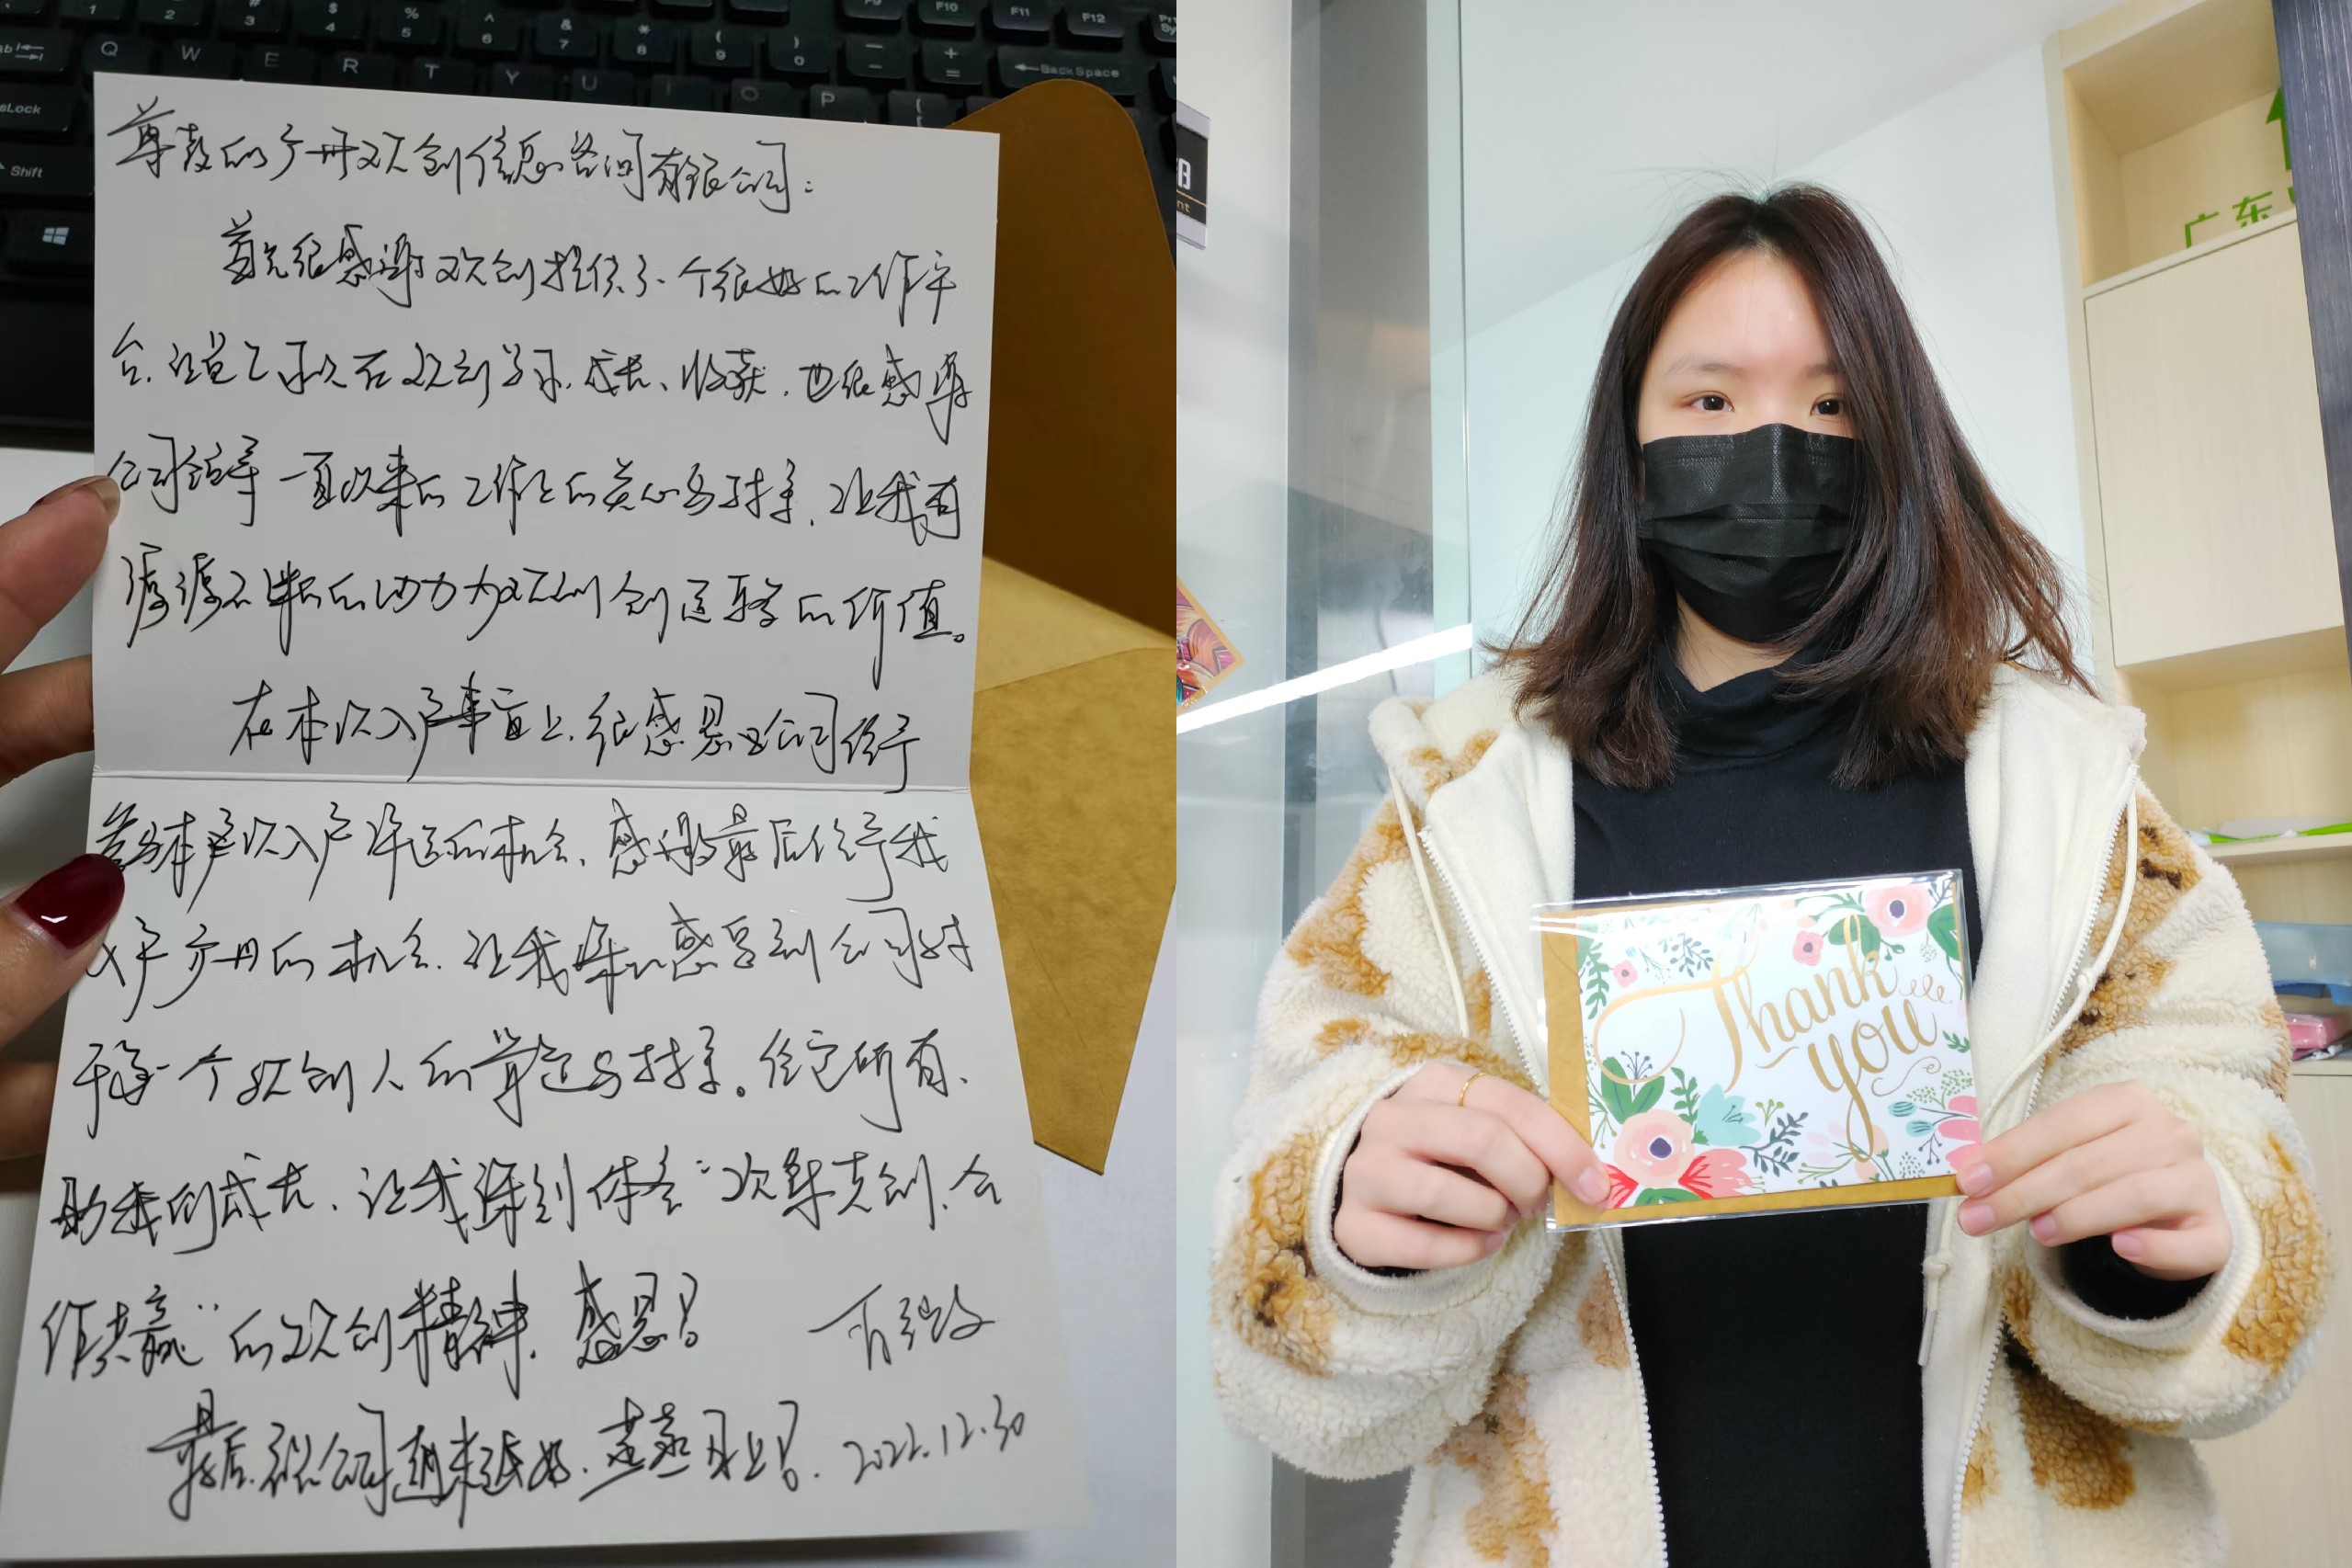 尊敬的广州欢创信息咨询有限公司：
首先很感谢欢创提供了一个很好的工作平
台，让自己可以在欢创学习、成长、收获，也很感谢
公司领导一直以来的工作上的关心与扶持，让我有
源源不断的动力为欢创创造更多的价值。
在本次入户事宜上，很感恩公司给予
参与本次入户评选的机会，感谢最后给予我
入户广州的机会，让我深深感受到公司对
于每一个欢创人的肯定与扶持。给它所有、
助我们成长，让我深刻体会“欢集克创，合
作共赢”的欢创精神，感恩！
最后，祝公司越来越好，蒸蒸日上！ 2022.12.30
Thank
you
广东
F9
F10
F11
F12
BackSpace
Q W E R T Y U I O P
Shift